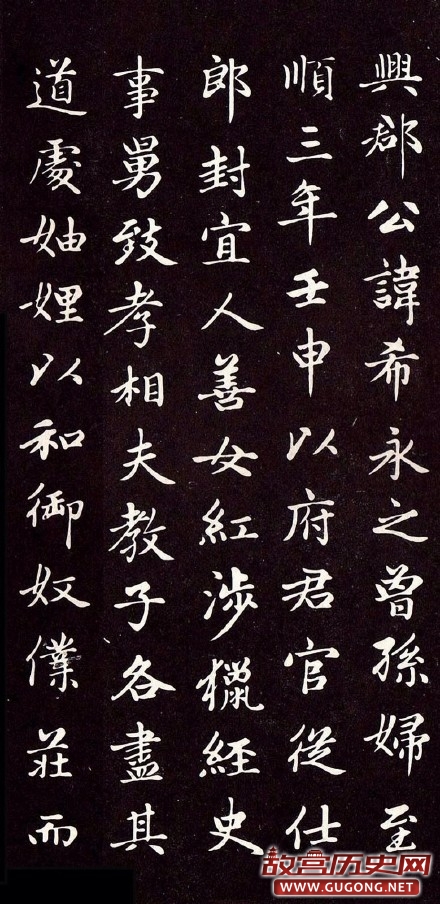 興郡公諱希永之曾孫婦至
順三年壬申以府君官從仕
郎封宜人善女紅涉獵經史
事舅致孝相夫教子各盡其
道處妯娌以和御奴僕莊而
故宫历史网
www.GUGONG.NET